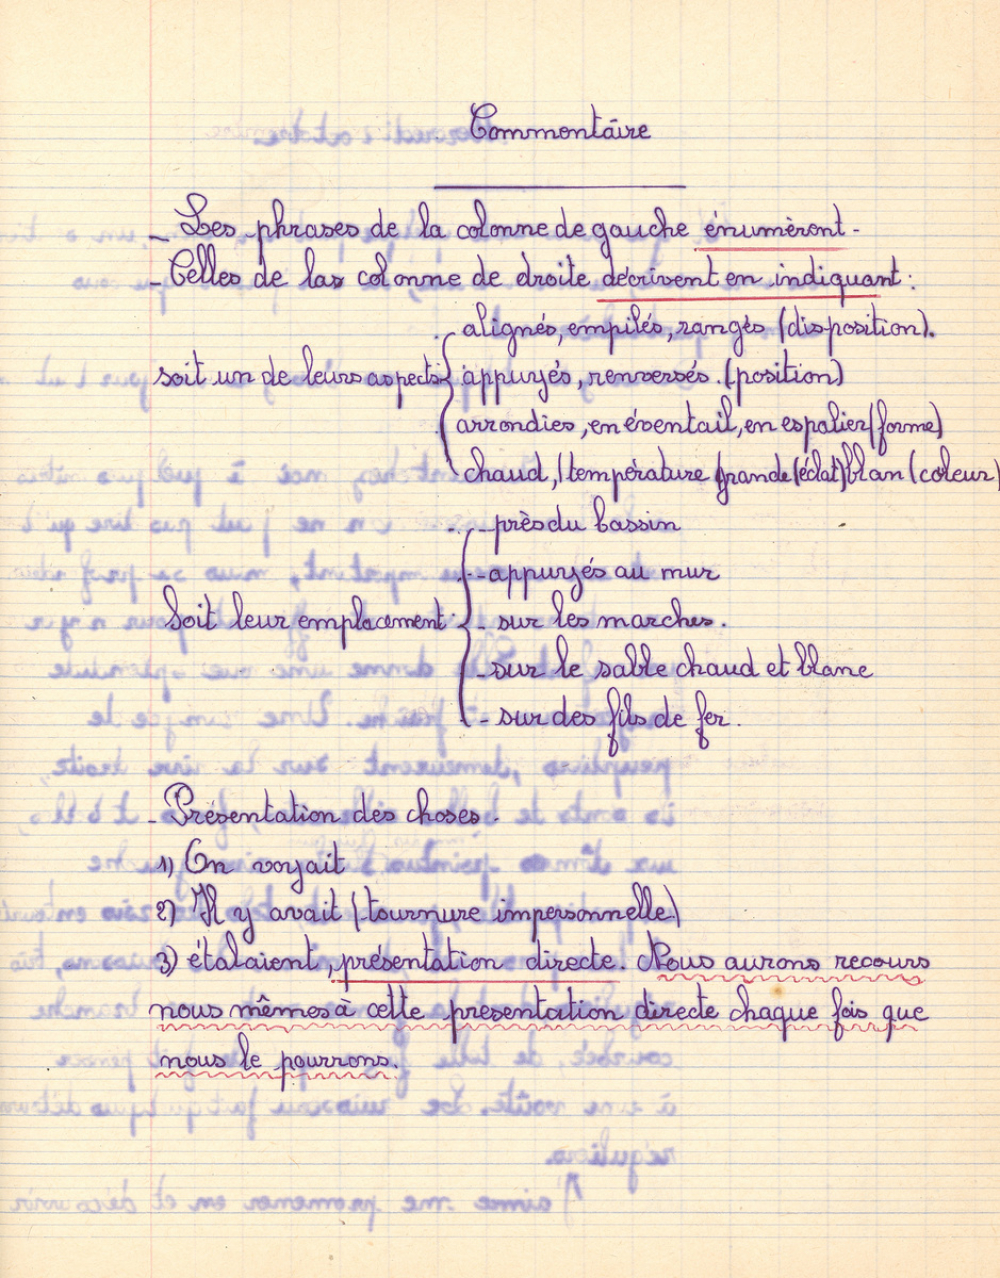 Commentaire
- Les phrases de la colonne de gauche énumèrent -
- Celles de las colonne de droite décrivent en indiquant :
alignés, empilés, rangés (disposition).
soit un de leurs aspects { appuyés, renversés. (position)
arrondies, en éventail, en espalier (forme)
chaud, (température grande (éclat) blan (couleur)
- près du bassin
- appuyés au mur
Soit leur emplacement { - sur les marches.
- sur le sable chaud et blanc
- sur des fils de fer.
- Présentation des choses -
1) On voyait
2) Il y avait (tournure impersonnelle)
3) étalaient, présentation directe. Nous aurons recours
nous mêmes à cette présentation directe chaque fois que
nous le pourrons.